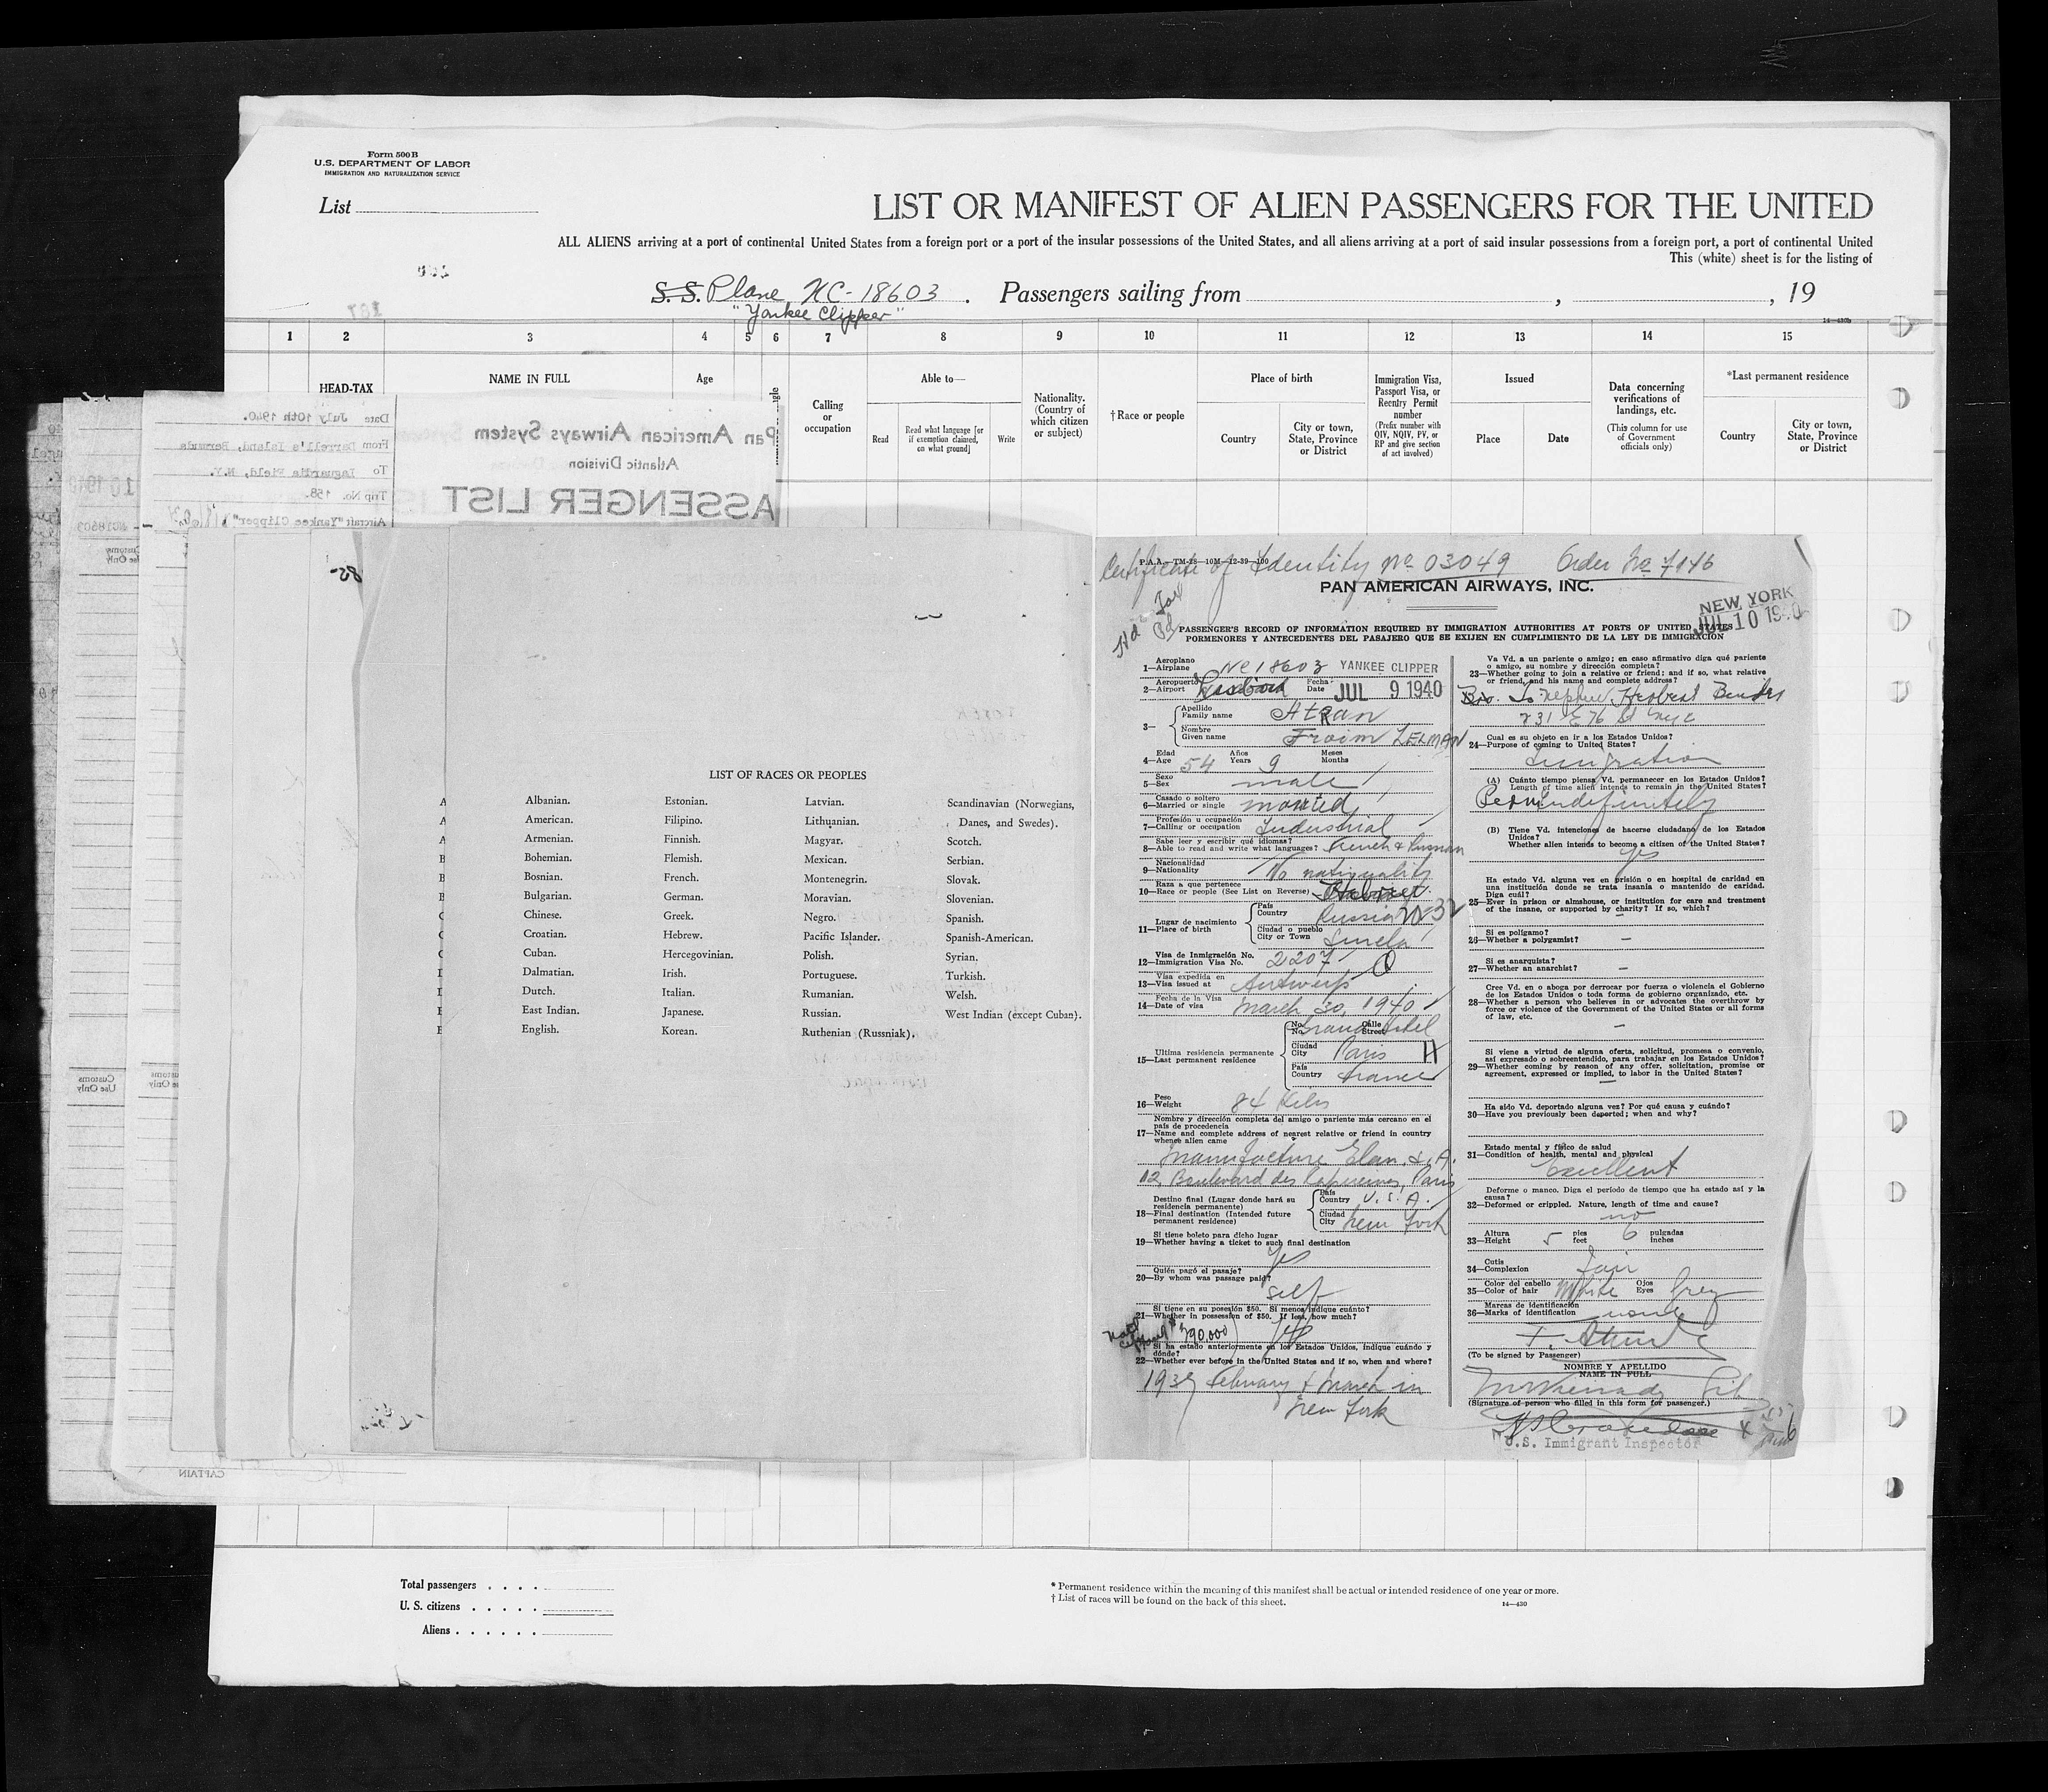 Form 500 B
U.S. DEPARTMENT OF LABOR
IMMIGRATION AND NATURALIZATION SERVICE
List
LIST OR MANIFEST OF ALIEN PASSENGERS FOR THE UNITED
ALL ALIENS arriving at a port of continental United States from a foreign port or a port of the insular possessions of the United States, and all aliens arriving at a port of said insular possessions from a foreign port, a port of continental United
This (white) sheet is for the listing of
S. S. Plane NC-18603. Passengers sailing from , , 19
"Yankee Clipper"
14—430b
1 2 3 4 5 6 7 8 9 10 11 12 13 14 15
HEAD-TAX
NAME IN FULL
Age
Calling
or
occupation
Able to—
Read
Read what language [or
if exemption claimed,
on what ground]
Write
Nationality.
(Country of
which citizen
or subject)
† Race or people
Place of birth
Country
City or town,
State, Province
or District
Immigration Visa,
Passport Visa, or
Reentry Permit
number
(Prefix number with
QIV, NQIV, PV, or
RP and give section
of act involved)
Issued
Place
Date
Data concerning
verifications of
landings, etc.
(This column for use
of Government
officials only)
*Last permanent residence
Country
City or town,
State, Province
or District
Date July 10th 1940.
From Darrell's Island, Bermuda
To Laguardia Field, N.Y.
Trip No. 158.
Aircraft "Yankee Clipper"
Pan American Airways System
Atlantic Division
ASSENGER LIST
NC18603
Customs
Use Only
Customs
Use Only
CAPTAIN
LIST OF RACES OR PEOPLES
Albanian. Estonian. Latvian. Scandinavian (Norwegians,
American. Filipino. Lithuanian. Danes, and Swedes).
Armenian. Finnish. Magyar. Scotch.
Bohemian. Flemish. Mexican. Serbian.
Bosnian. French. Montenegrin. Slovak.
Bulgarian. German. Moravian. Slovenian.
Chinese. Greek. Negro. Spanish.
Croatian. Hebrew. Pacific Islander. Spanish-American.
Cuban. Hercegovinian. Polish. Syrian.
Dalmatian. Irish. Portuguese. Turkish.
Dutch. Italian. Rumanian. Welsh.
East Indian. Japanese. Russian. West Indian (except Cuban).
English. Korean. Ruthenian (Russniak).
P.A.A.—TM-28—10M—12-39—100
Certificate of Identity No 03049 Order No 7146
PAN AMERICAN AIRWAYS, INC.
NEW YORK
JUL 10 1940
Hd Tax
Pd
PASSENGER'S RECORD OF INFORMATION REQUIRED BY IMMIGRATION AUTHORITIES AT PORTS OF UNITED STATES
PORMENORES Y ANTECEDENTES DEL PASAJERO QUE SE EXIJEN EN CUMPLIMIENTO DE LA LEY DE IMMIGRACION
Aeroplano
1—Airplane NC 18603 YANKEE CLIPPER
Aeropuerto Fecha
2—Airport Date JUL 9 1940
Apellido
Family name Atran
3—
Nombre
Given name Froim ZELMAN
Edad Años Meses
4—Age 54 Years 9 Months
Sexo
5—Sex male
Casado o soltero
6—Married or single married
Profesión u ocupación
7—Calling or occupation Industrial
Sabe leer y escribir qué idiomas?
8—Able to read and write what languages? French & Russian
Nacionalidad
9—Nationality No nationality
Raza a que pertenece
10—Race or people (See List on Reverse) Hebrew
País
Country Russia
Lugar de nacimiento
11—Place of birth
Ciudad o pueblo
City or Town Smela
Visa de Inmigración No.
12—Immigration Visa No. 2207
Visa expedida en
13—Visa issued at Antwerp
Fecha de la Visa
14—Date of visa March 30, 1940
No. Calle
No. Street Grand Hotel
Ultima residencia permanente
15—Last permanent residence
Ciudad
City Paris H
País
Country France
Peso
16—Weight 84 Kilos
Nombre y dirección completa del amigo o pariente más cercano en el
país de procedencia
17—Name and complete address of nearest relative or friend in country
whence alien came
Manufacture Elan, S. A.
12, Boulevard des Capucines, Paris
Destino final (Lugar donde hará su
residencia permanente)
18—Final destination (Intended future
permanent residence)
País
Country U. S. A.
Ciudad
City New York
Si tiene boleto para dicho lugar
19—Whether having a ticket to such final destination
Yes
Quién pagó el pasaje?
20—By whom was passage paid?
self
Si tiene en su posesión $50. Si menos indique cuánto?
21—Whether in possession of $50. If less, how much?
Yes
Si ha estado anteriormente en los Estados Unidos, indique cuándo y
dónde?
22—Whether ever before in the United States and if so, when and where?
1939 February & March in
New York
Va Vd. a un pariente o amigo; en caso afirmativo diga qué pariente
o amigo, su nombre y dirección completa?
23—Whether going to join a relative or friend; and if so, what relative
or friend, and his name and complete address?
Bro. To nephew Herbert Bender
231 E 76 St NYC
Cual es su objeto en ir a los Estados Unidos?
24—Purpose of coming to United States?
Immigration
(A) Cuánto tiempo piensa Vd. permanecer en los Estados Unidos?
Length of time alien intends to remain in the United States?
Perm indefinitely
(B) Tiene Vd. intenciones de hacerse ciudadano de los Estados
Unidos?
Whether alien intends to become a citizen of the United States?
yes
Ha estado Vd. alguna vez en prisión o en hospital de caridad en
una institución donde se trata insania o mantenido de caridad.
Diga cuál?
25—Ever in prison or almshouse, or institution for care and treatment
of the insane, or supported by charity? If so, which?
Si es poligamo?
26—Whether a polygamist? —
Si es anarquista?
27—Whether an anarchist? —
Cree Vd. en o aboga por derrocar por fuerza o violencia el Gobierno
de los Estados Unidos o toda forma de gobierno organizado, etc.
28—Whether a person who believes in or advocates the overthrow by
force or violence of the Government of the United States or all forms
of law, etc.
—
Si viene a virtud de alguna oferta, solicitud, promesa o convenio,
así expresado o sobreentendido, para trabajar en los Estados Unidos?
29—Whether coming by reason of any offer, solicitation, promise or
agreement, expressed or implied, to labor in the United States?
—
Ha sido Vd. deportado alguna vez? Por qué causa y cuándo?
30—Have you previously been deported; when and why?
Estado mental y físico de salud
31—Condition of health, mental and physical
Excellent
Deforme o manco. Diga el período de tiempo que ha estado así y la
causa?
32—Deformed or crippled. Nature, length of time and cause?
no
Altura pies pulgadas
33—Height 5 feet 6 inches
Cutis
34—Complexion Fair
Color del cabello Ojos
35—Color of hair White Eyes Grey
Marcas de identificación
36—Marks of identification none
F. Atran
(To be signed by Passenger)
NOMBRE Y APELLIDO
NAME IN FULL
(Signature of person who filled in this form for passenger.)
U.S. Immigrant Inspector
Total passengers . . . .
U. S. citizens . . . . .
Aliens . . . . . .
* Permanent residence within the meaning of this manifest shall be actual or intended residence of one year or more.
† List of races will be found on the back of this sheet.
14—430